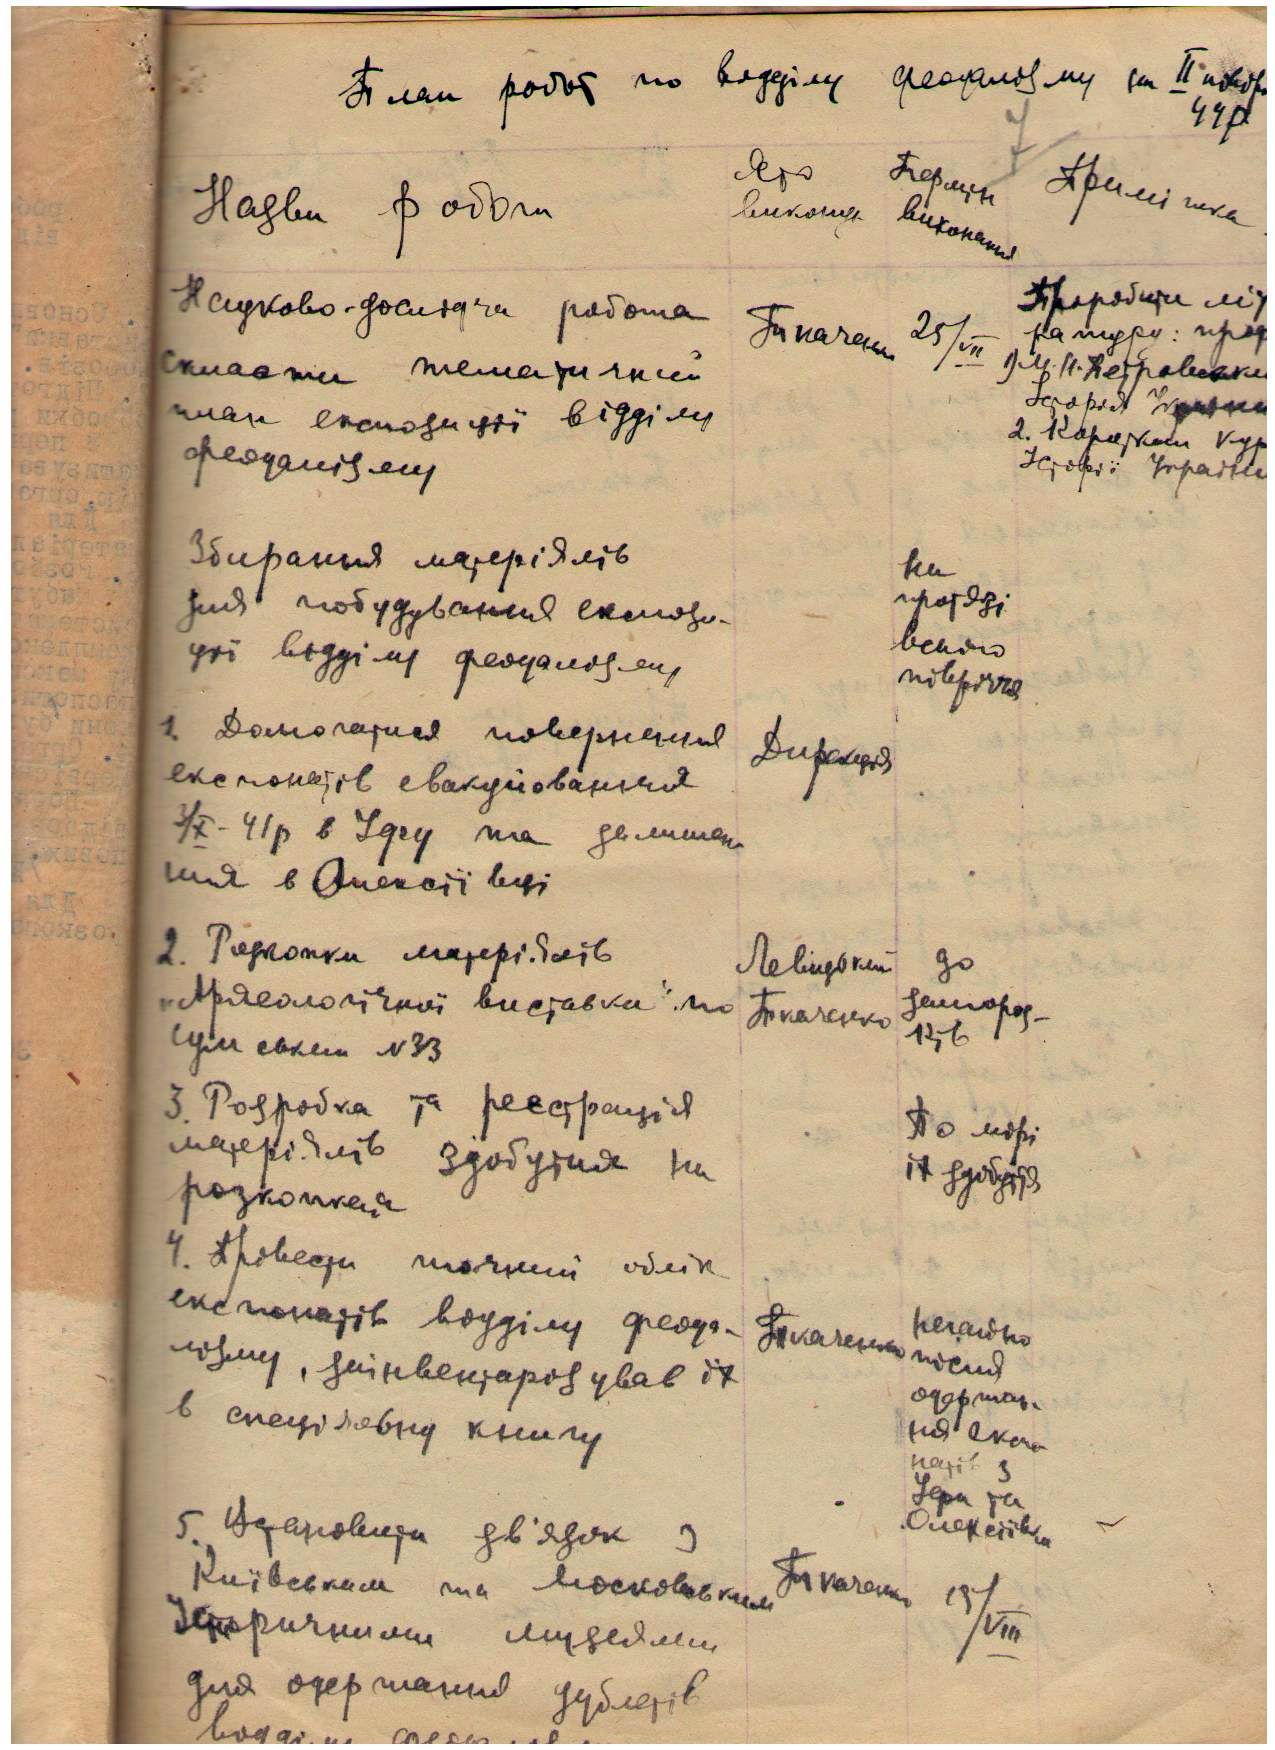 План работ по відділу феодалізму на II піврі
44р
7
Назви роботи
Хто
виконує
Термін
виконання
Примітка
Науково-дослідча робота
скласти тематичний
план експозиції відділу
феодалізму
Ткаченко
25/VII
Проробити літ
ратуру: проф
1) М.Н. Петровськи
Історія України
2. Короткий кур
Історії України
Збирання матеріялів
для побудування експози-
ції відділу феодалізму
на
протязі
всього
півріччя
1. Домогатися повернення
експонатів евакуйованния
3/X - 41р в Уфу та залишен
ния в Олексіївці
Дирекція
2. Розкопки матеріялів
"Археологічної виставки" по
Сумській №33
Левицький
Ткаченко
до
замороз-
ків
3. Розробка та реєстрація
матеріялів здобутия на
розкопках
По мірі
їх здобуття
4. Провести точний облік
експонатів відділу феода-
лізму, заінвентарізував їх
в спеціяльну книгу
Ткаченко
негайно
після
одержан-
ня експо
натів з
Уфи та
Олексіївки
5. Установити зв'язок з
Київським та Московським
Історичними музеями
для одержання дублетів
відділу
Ткаченко
15/VIII